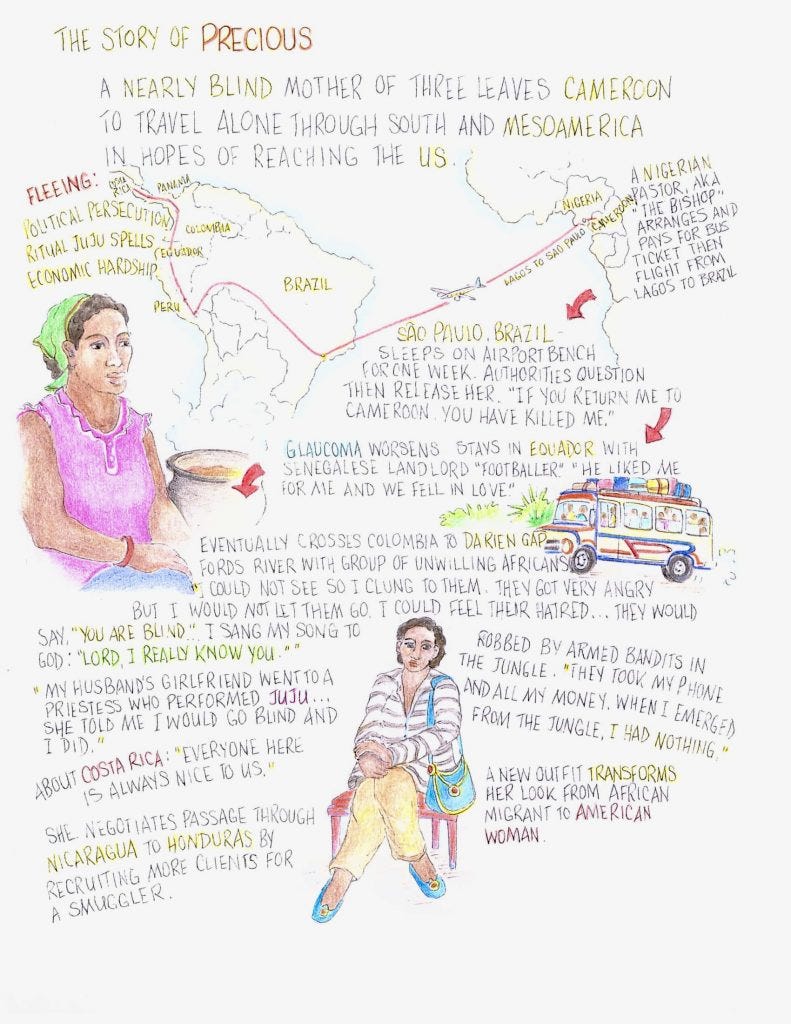 THE STORY OF PRECIOUS
A NEARLY BLIND MOTHER OF THREE LEAVES CAMEROON
TO TRAVEL ALONE THROUGH SOUTH AND MESOAMERICA
IN HOPES OF REACHING THE US.
FLEEING:
POLITICAL PERSECUTION
RITUAL JUJU SPELLS
ECONOMIC HARDSHIP
COSTA
RICA
PANAMA
COLOMBIA
EQUADOR
PERU
BRAZIL
LAGOS TO SAO PAULO
NIGERIA
CAMEROON
A NIGERIAN
PASTOR, AKA
"THE BISHOP"
ARRANGES AND
PAYS FOR BUS
TICKET THEN
FLIGHT FROM
LAGOS TO BRAZIL
SÃO PAULO, BRAZIL -
SLEEPS ON AIRPORT BENCH
FOR ONE WEEK. AUTHORITIES QUESTION
THEN RELEASE HER. "IF YOU RETURN ME TO
CAMEROON, YOU HAVE KILLED ME."
GLAUCOMA WORSENS STAYS IN EQUADOR WITH
SENEGALESE LANDLORD "FOOTBALLER." "HE LIKED ME
FOR ME AND WE FELL IN LOVE."
EVENTUALLY CROSSES COLOMBIA TO DARIEN GAP
FORDS RIVER WITH GROUP OF UNWILLING AFRICANS
"I COULD NOT SEE SO I CLUNG TO THEM. THEY GOT VERY ANGRY
BUT I WOULD NOT LET THEM GO. I COULD FEEL THEIR HATRED... THEY WOULD
SAY, "YOU ARE BLIND". I SANG MY SONG TO
GOD: "LORD, I REALLY KNOW YOU." "
"MY HUSBAND'S GIRLFRIEND WENT TO A
PRIESTESS WHO PERFORMED JUJU...
SHE TOLD ME I WOULD GO BLIND AND
I DID."
ABOUT COSTA RICA: "EVERYONE HERE
IS ALWAYS NICE TO US."
SHE NEGOTIATES PASSAGE THROUGH
NICARAGUA TO HONDURAS BY
RECRUITING MORE CLIENTS FOR
A SMUGGLER.
ROBBED BY ARMED BANDITS IN
THE JUNGLE. "THEY TOOK MY PHONE
AND ALL MY MONEY. WHEN I EMERGED
FROM THE JUNGLE, I HAD NOTHING."
A NEW OUTFIT TRANSFORMS
HER LOOK FROM AFRICAN
MIGRANT TO AMERICAN
WOMAN.